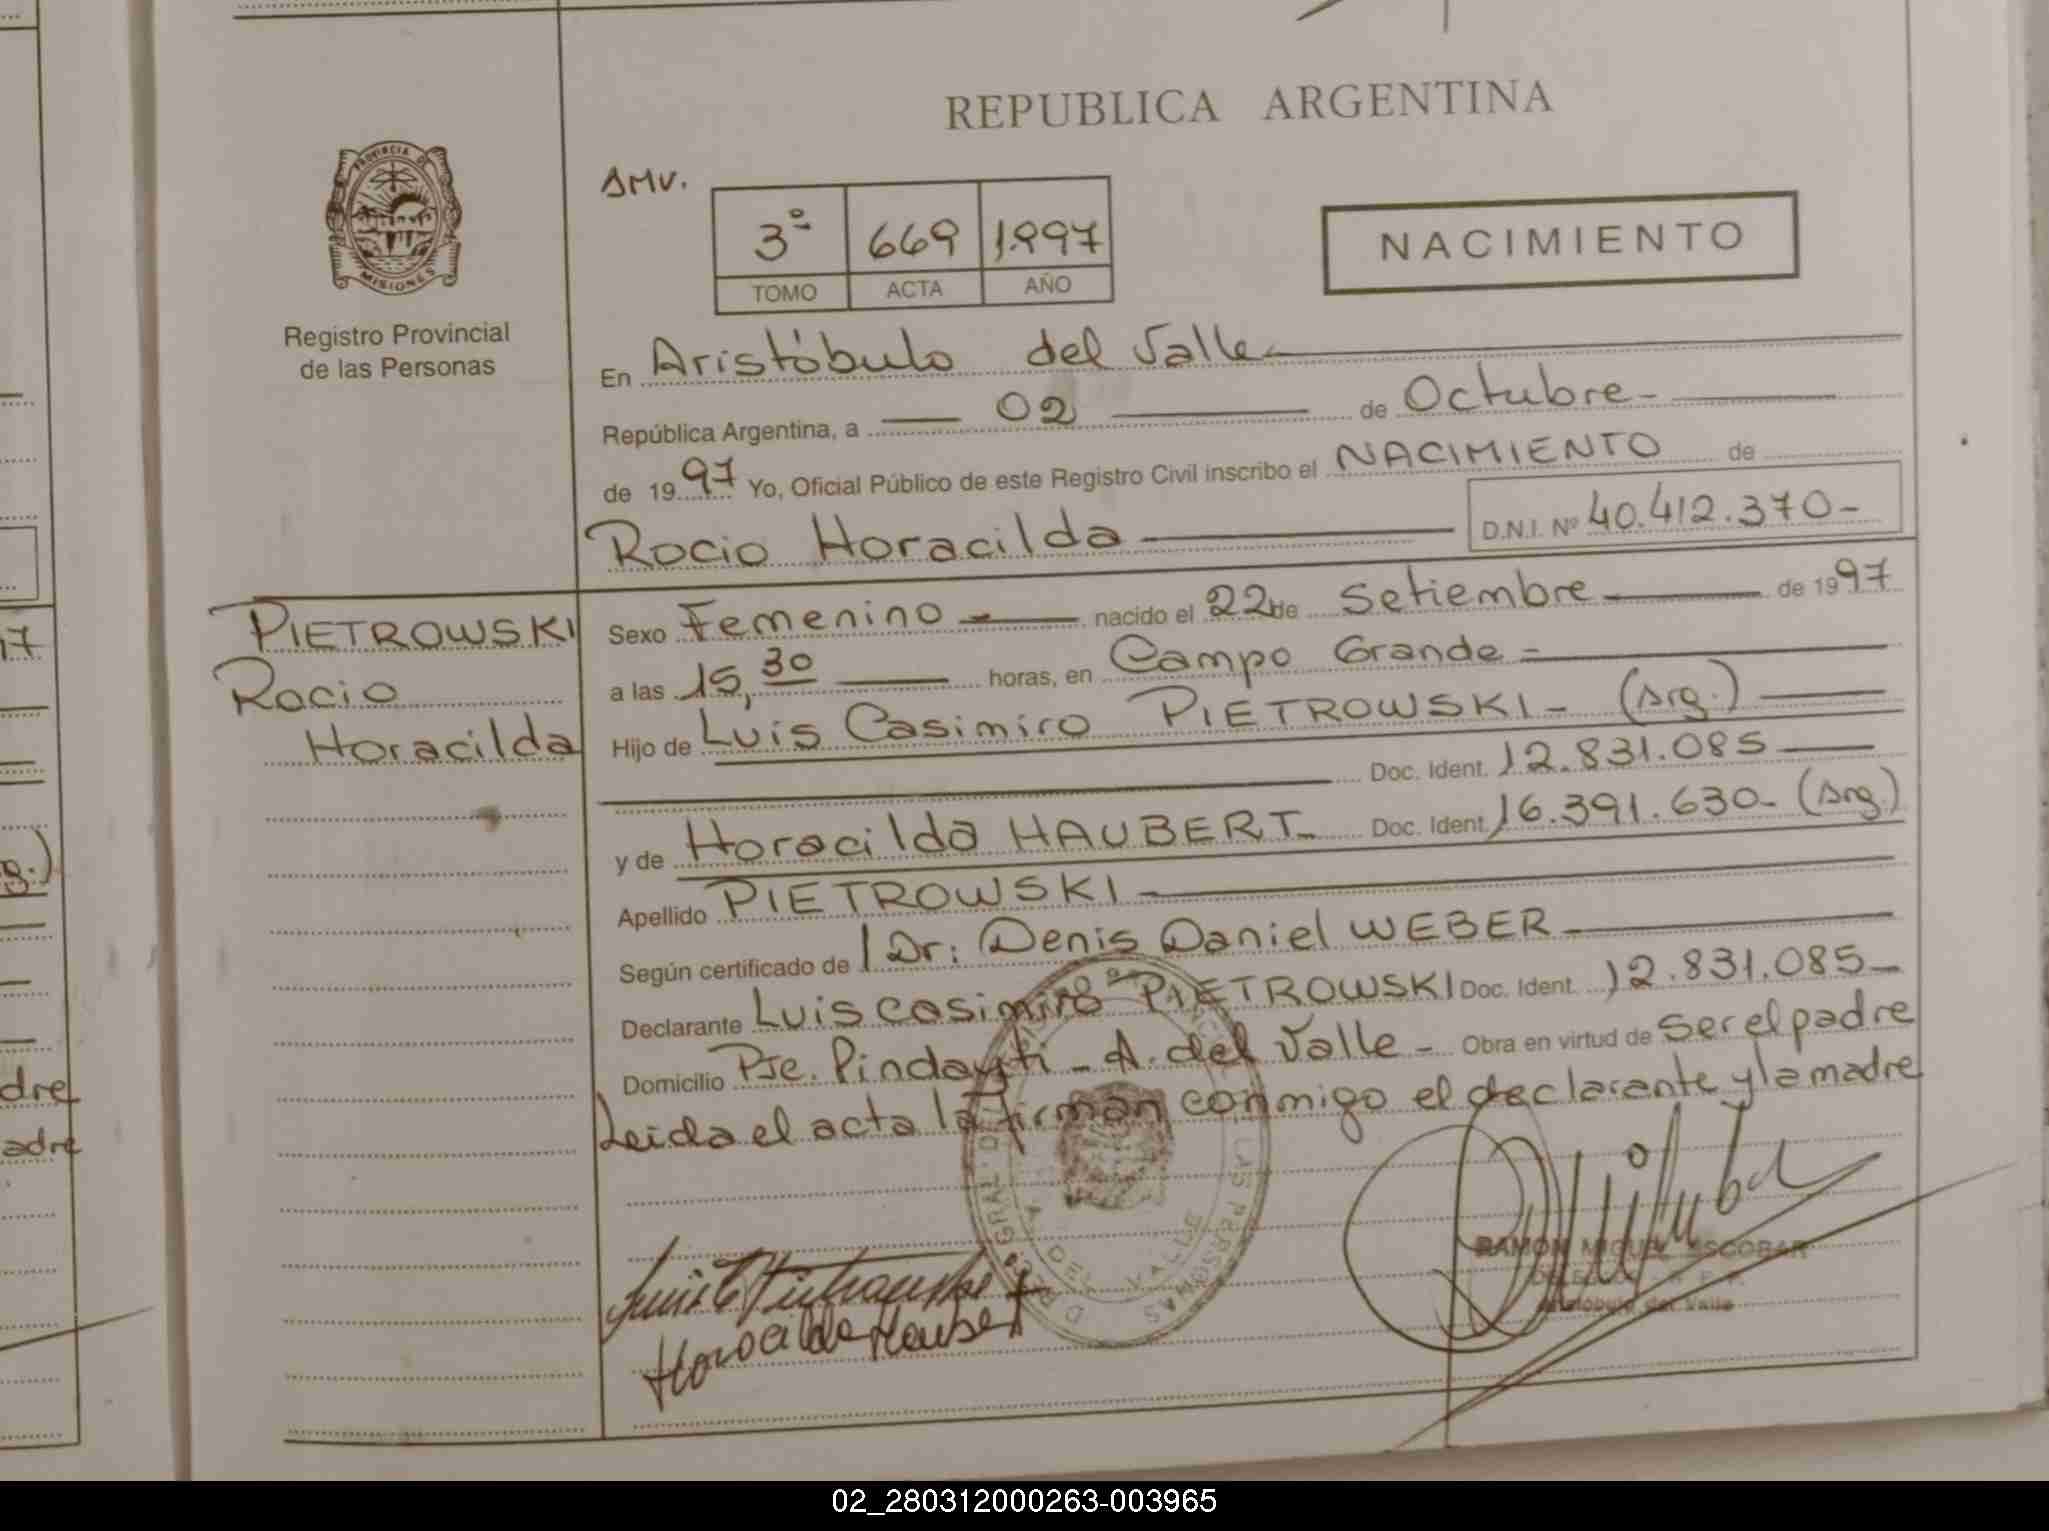 REPUBLICA ARGENTINA
PROVINCIA DE
MISIONES
Registro Provincial
de las Personas
SMV.
3º 669 1.997
TOMO ACTA AÑO
NACIMIENTO
En Aristóbulo del Valle
República Argentina, a 02 de Octubre
de 1997 Yo, Oficial Público de este Registro Civil inscribo el NACIMIENTO de
Rocio Horacilda D.N.I. Nº 40.412.370-
PIETROWSKI
Rocio
Horacilda
Sexo Femenino nacido el 22 de Setiembre de 1997
a las 15,30 horas, en Campo Grande
Hijo de Luis Casimiro PIETROWSKI- (Arg.)
Doc. Ident. 12.831.085
y de Horacilda HAUBERT- Doc. Ident. 16.391.630- (Arg.)
Apellido PIETROWSKI
Según certificado de Dr: Denis Daniel WEBER
Declarante Luis Casimiro PIETROWSKI Doc. Ident. 12.831.085-
Domicilio Pje. Pindayti - A. del Valle - Obra en virtud de ser el padre
Leida el acta la firman conmigo el declarante y la madre
Horacilda Haubert
RAMON MIGUEL ESCOBAR
Aristóbulo del Valle
17
g.)
dre
adre
02_280312000263-003965